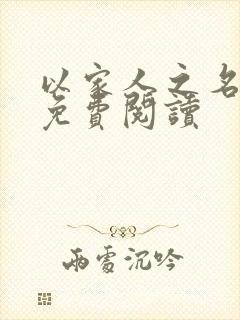 以家人之名
免費閱讀
雨雪沉吟